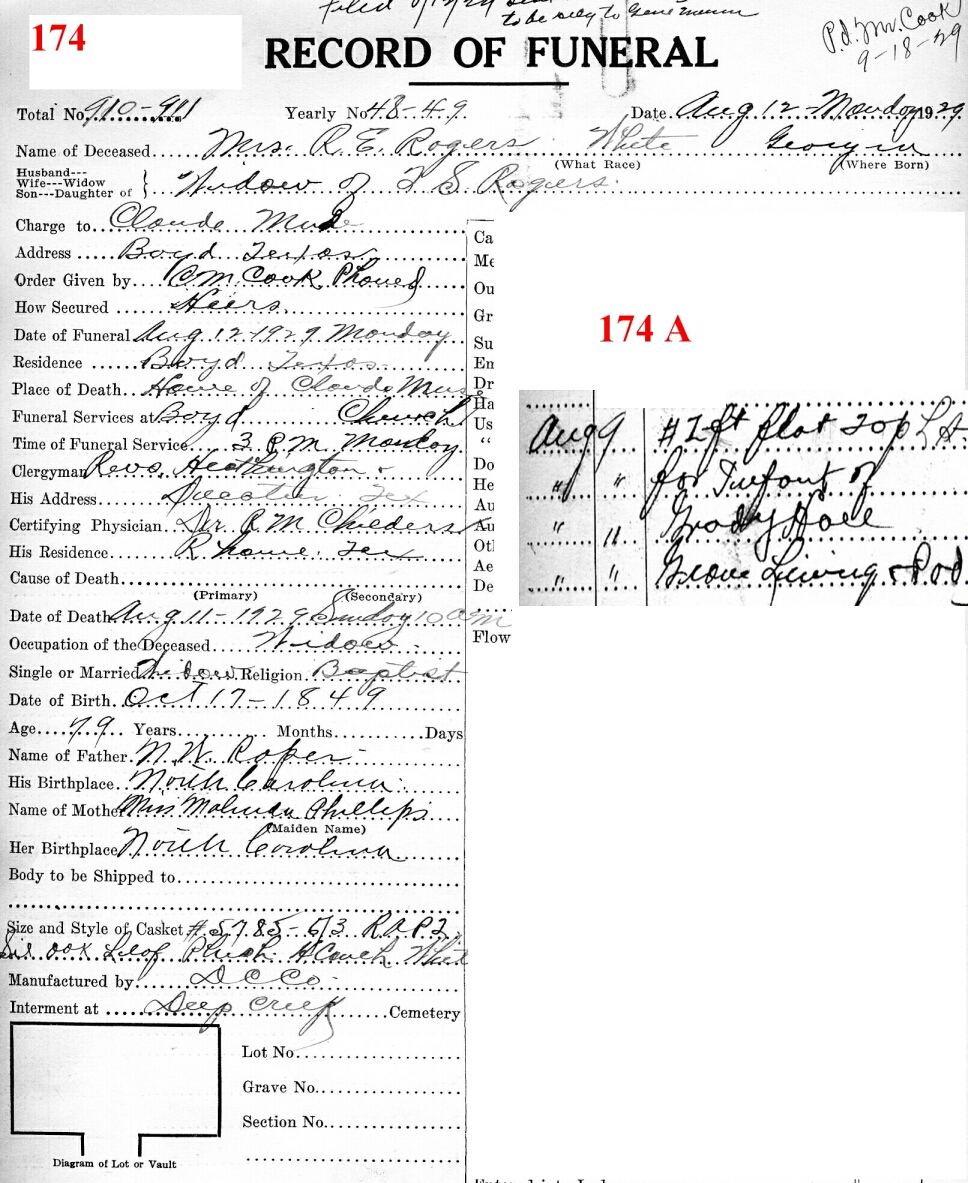 174
Filed
to be
Pd. J.M. Cook
9-18-29
RECORD OF FUNERAL
Total No. 910-911 Yearly No. 48-49 Date. Aug 12-Monday 1929
Name of Deceased Mrs. R. E. Rogers White Georgia
(What Race) (Where Born)
Husband---
Wife---Widow
Son---Daughter of } Widow of S. Rogers.
Charge to Claude
Address Boyd Texas
Order Given by C M Cook Phoned
How Secured Heirs.
Date of Funeral Aug. 12-1929 Monday
Residence Boyd Texas.
Place of Death Home of Claude
Funeral Services at Boyd Church
Time of Funeral Service 3 P.M. Monday
Clergyman Revs. &
His Address Tex
Certifying Physician Dr. R M Childers
His Residence Rhome. Tex
Cause of Death
(Primary) (Secondary)
Date of Death Aug 11-1929 Sunday 10 am
Occupation of the Deceased Widow.
Single or Married Widow Religion Baptist
Date of Birth Oct 17-1849
Age 79 Years Months Days
Name of Father N. W. Roper
His Birthplace North Carolina.
Name of Mother Miss Malinda Phillips
(Maiden Name)
Her Birthplace North Carolina
Body to be Shipped to
Size and Style of Casket #5785-6/3
Plush Couch
Manufactured by D C Co.
Interment at Deep Creek Cemetery
Lot No.
Grave No.
Section No.
Diagram of Lot or Vault
Ca
Me
Ou
Gr
Su
Em
Dr
Ha
Us
"
Do
He
Au
Au
Otl
Ae
De
Flow
174 A
Aug 9 # 2 ft flat top
" " for Infant of
" " Grady
" " Grave Lining &